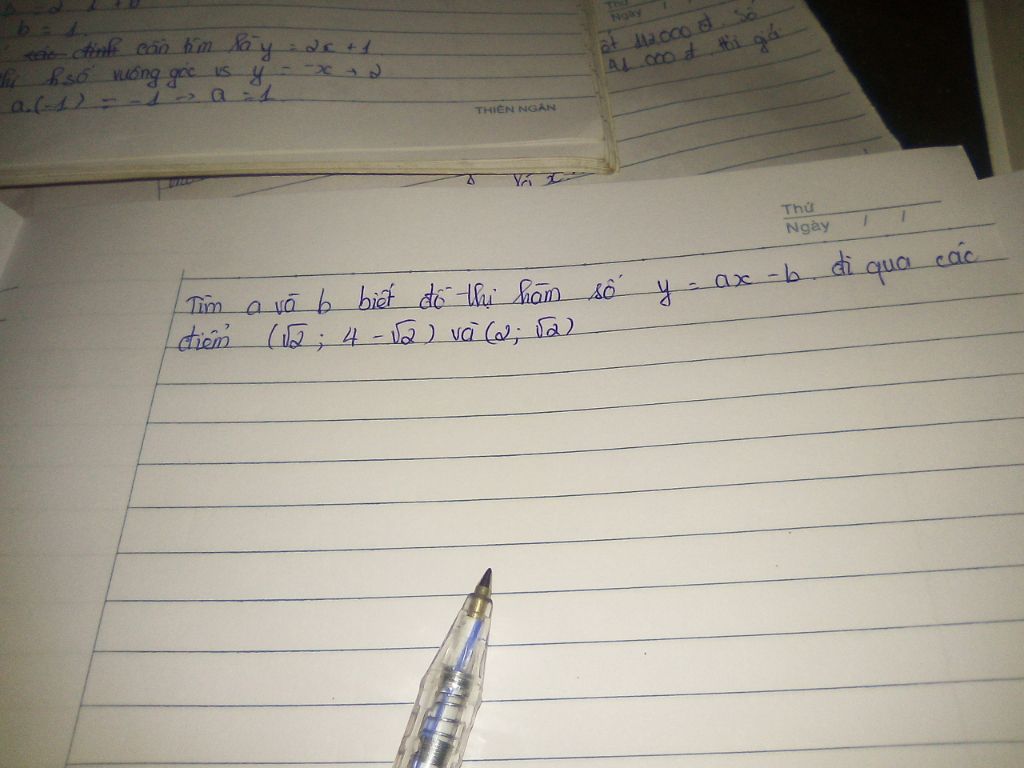 b = 1.
cần tìm là y = 2x + 1
h số vuông góc vs y = -x + 2
a.(-1) = -1 → a = 1
THIÊN NGÂN
Thứ
Ngày / /
112.000 đ. Số
000 đ thì giá
Thứ
Ngày / /
Tìm a và b biết đồ thị hàm số y = ax - b. đi qua các
điểm (√2 ; 4 - √2) và (2; √2)